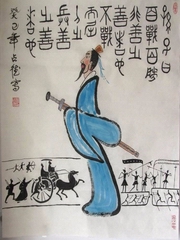 孫子曰
百戰百勝
非善之
善者也
不戰
而屈
人之
兵善
之善
者也